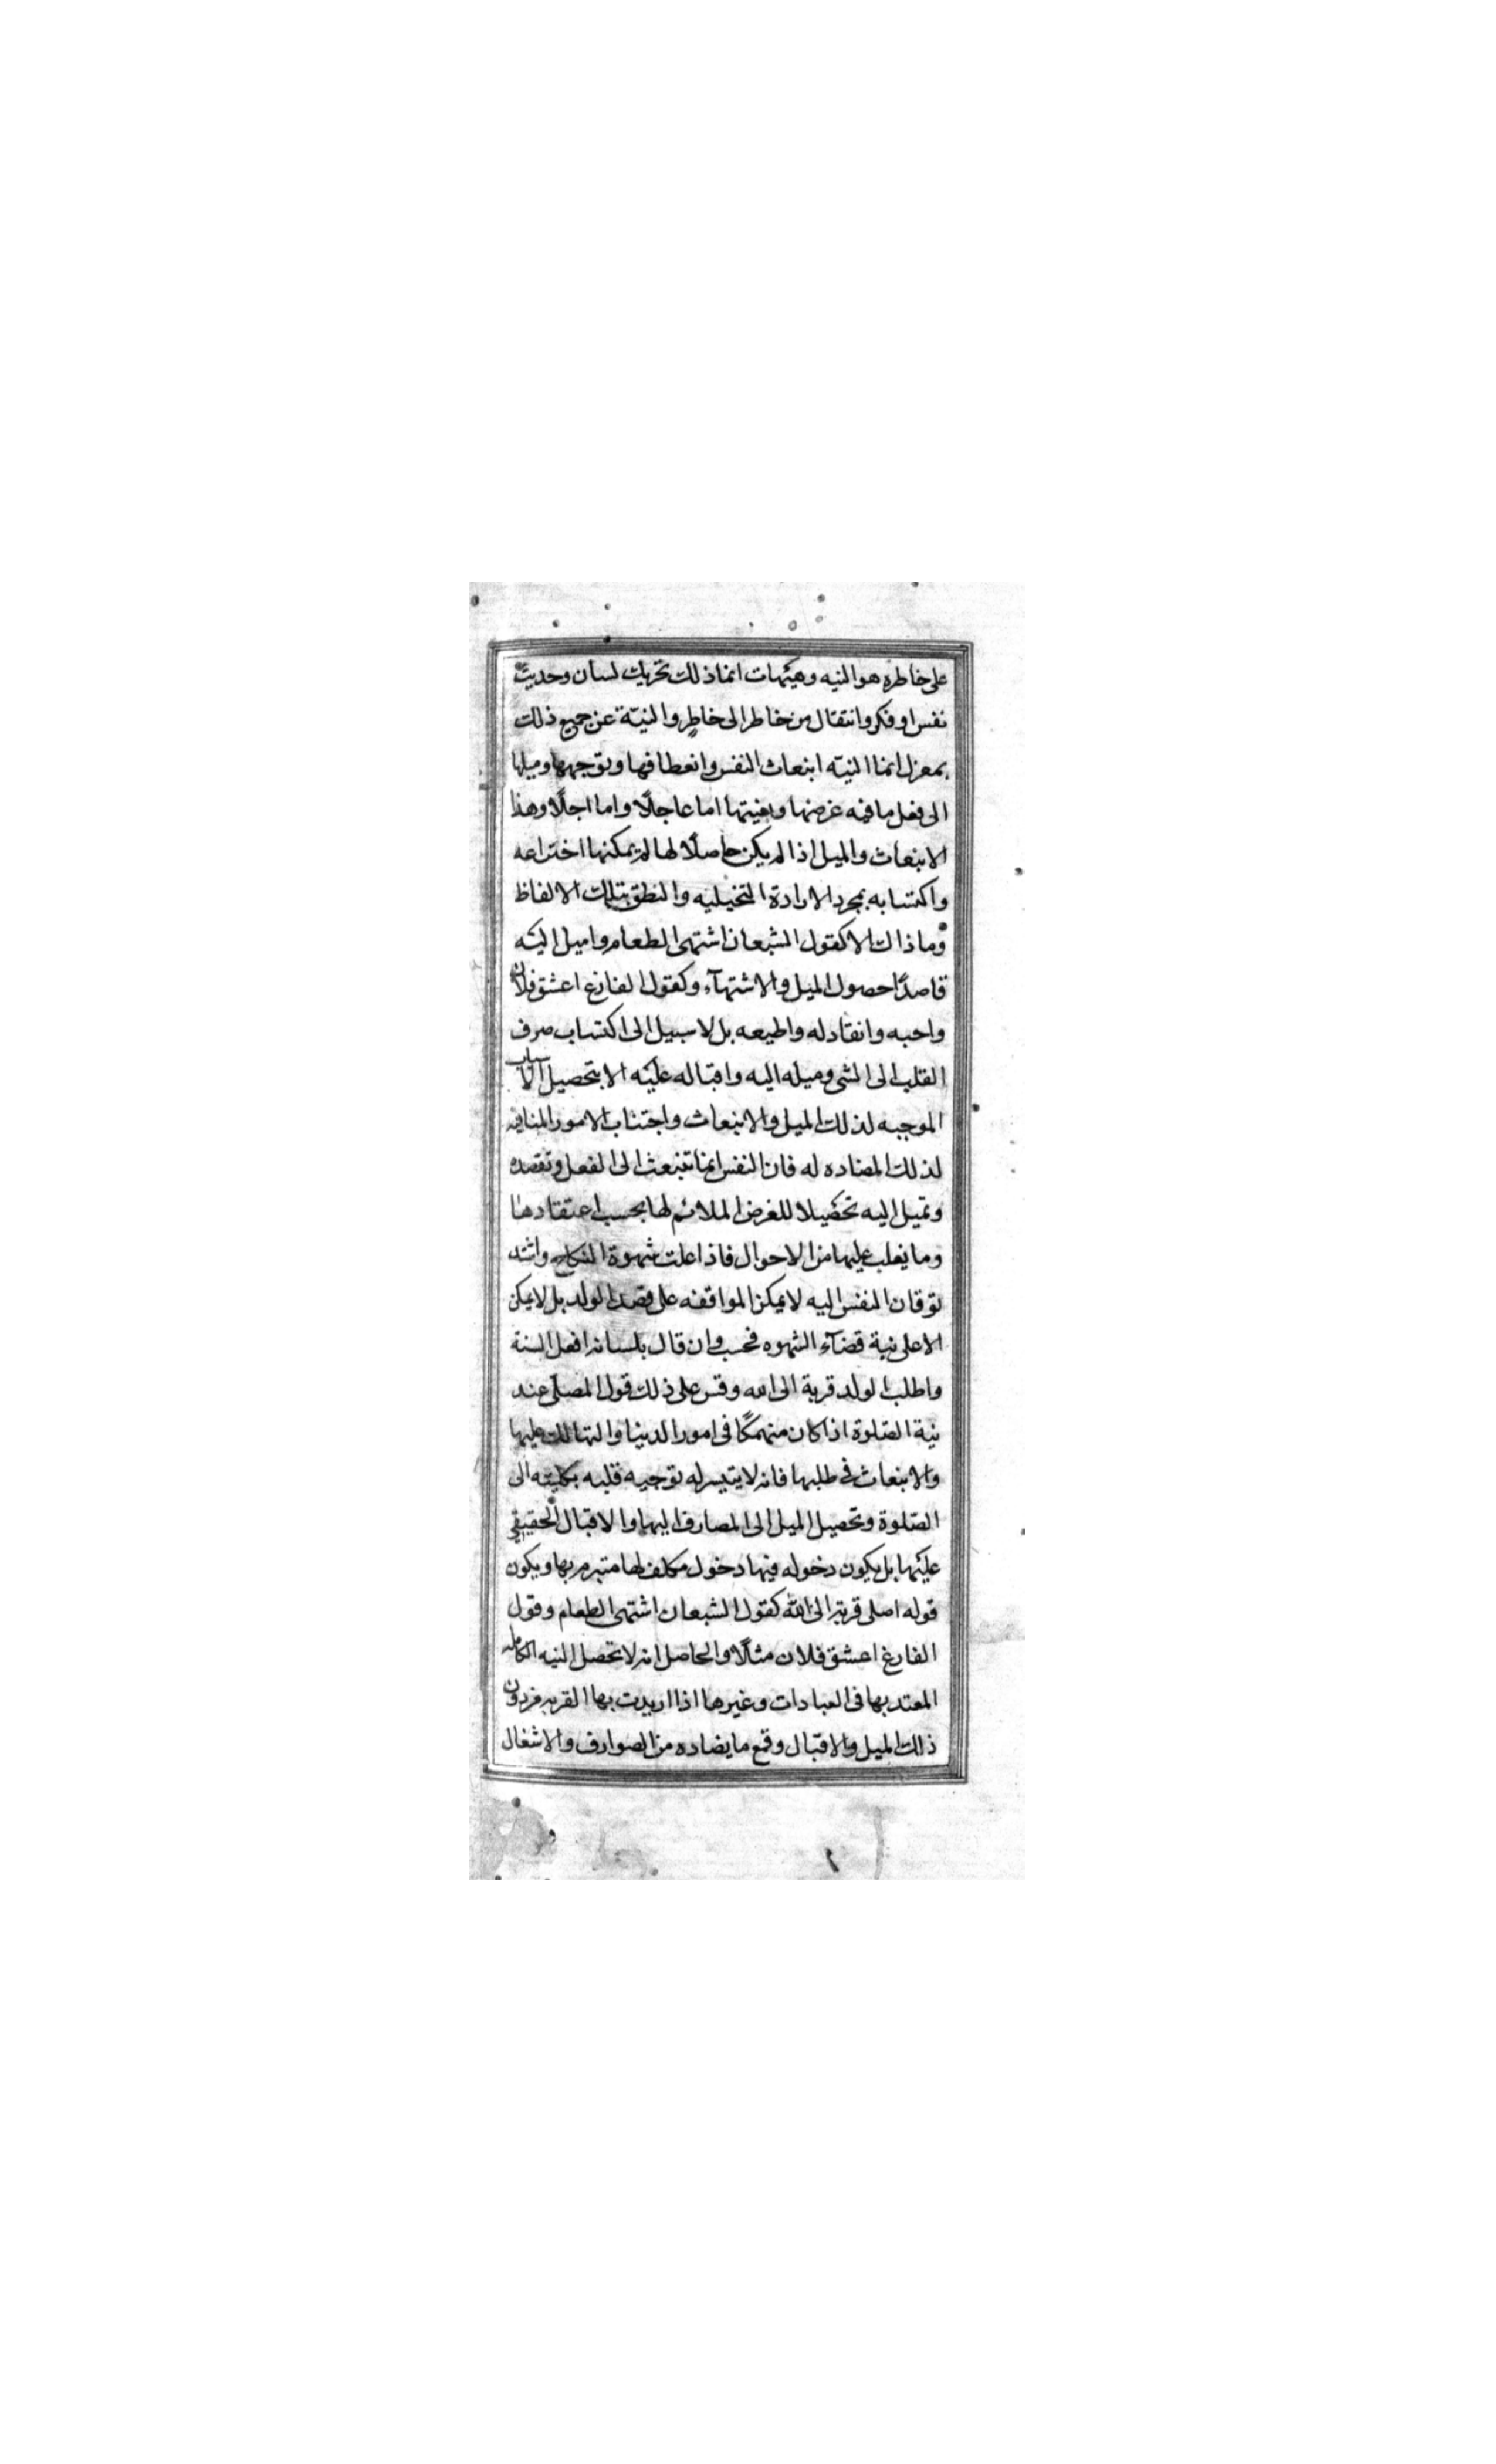 على خاطره هو النيه وهيهات انما ذلك تحريك لسان وحديث
نفس او فكر وانتقال من خاطر الى خاطر والنيّة عن جميع ذلك
بمعزل انما النيّه ابنعاث النفس وانعطافها وتوجهها وميلها
الى فعل ما فيه غرضها وبغيتها اما عاجلًا واما اجلًا وهذا
الابنعاث والميل اذا لم يكن حاصلًا لها لم يمكنها اختراعه
واكتسابه بمجرد الارادة التخيليه والنطق بتلك الالفاظ
وما ذلك الا كقول الشبعان اشتهى الطعام واميل اليه
قاصدًا حصول الميل والاشتهآء وكقول الفارغ اعشق فلان
واحبه وانقاد له واطيعه بل لا سبيل الى اكتساب صرف
القلب الى الشى وميله اليه واقباله عليه الا بتحصيل الاسباب
الموجبه لذلك الميل والابنعاث واجتناب الامور المنافيه
لذلك المضاده له فان النفس انما تنبعث الى الفعل وتقصده
وتميل اليه تحصيلا للغرض الملائم لها بحسب اعتقادها
وما يغلب عليها من الاحوال فاذا غلت شهوة النكاح واشتد
توقان النفس اليه لا يمكن المواقعه على قصد الولد بل لا يمكن
الا على نية قضآء الشهوه فحسب وان قال بلسانه افعل السنة
واطلب الولد قربة الى الله وقس على ذلك قول المصلى عند
نية الصّلوة اذا كان منهمكًا فى امور الدنيا والتهالك عليها
والابنعاث فى طلبها فانه لا يتيسر له توجيه قلبه بكليته الى
الصّلوة وتحصيل الميل الى المصارف اليها والاقبال الحقيقى
عليها بل يكون دخوله فيها دخول مكلف لها متبرم بها ويكون
قوله اصلى قربة الى الله كقول الشبعان اشتهى الطعام وقول
الفارغ اعشق فلان مثلًا والحاصل انه لا تحصل النيه الكامله
المعتد بها فى العبادات وغيرها اذا اريدت بها القربه من دون
ذلك الميل والاقبال وقمع ما يضاده من الصوارف والاشغال